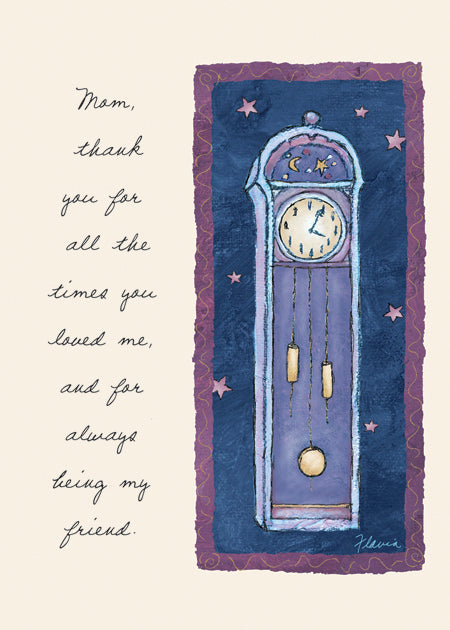 Mom,
thank
you for
all the
times you
loved me,
and for
always
being my
friend.
Flavia